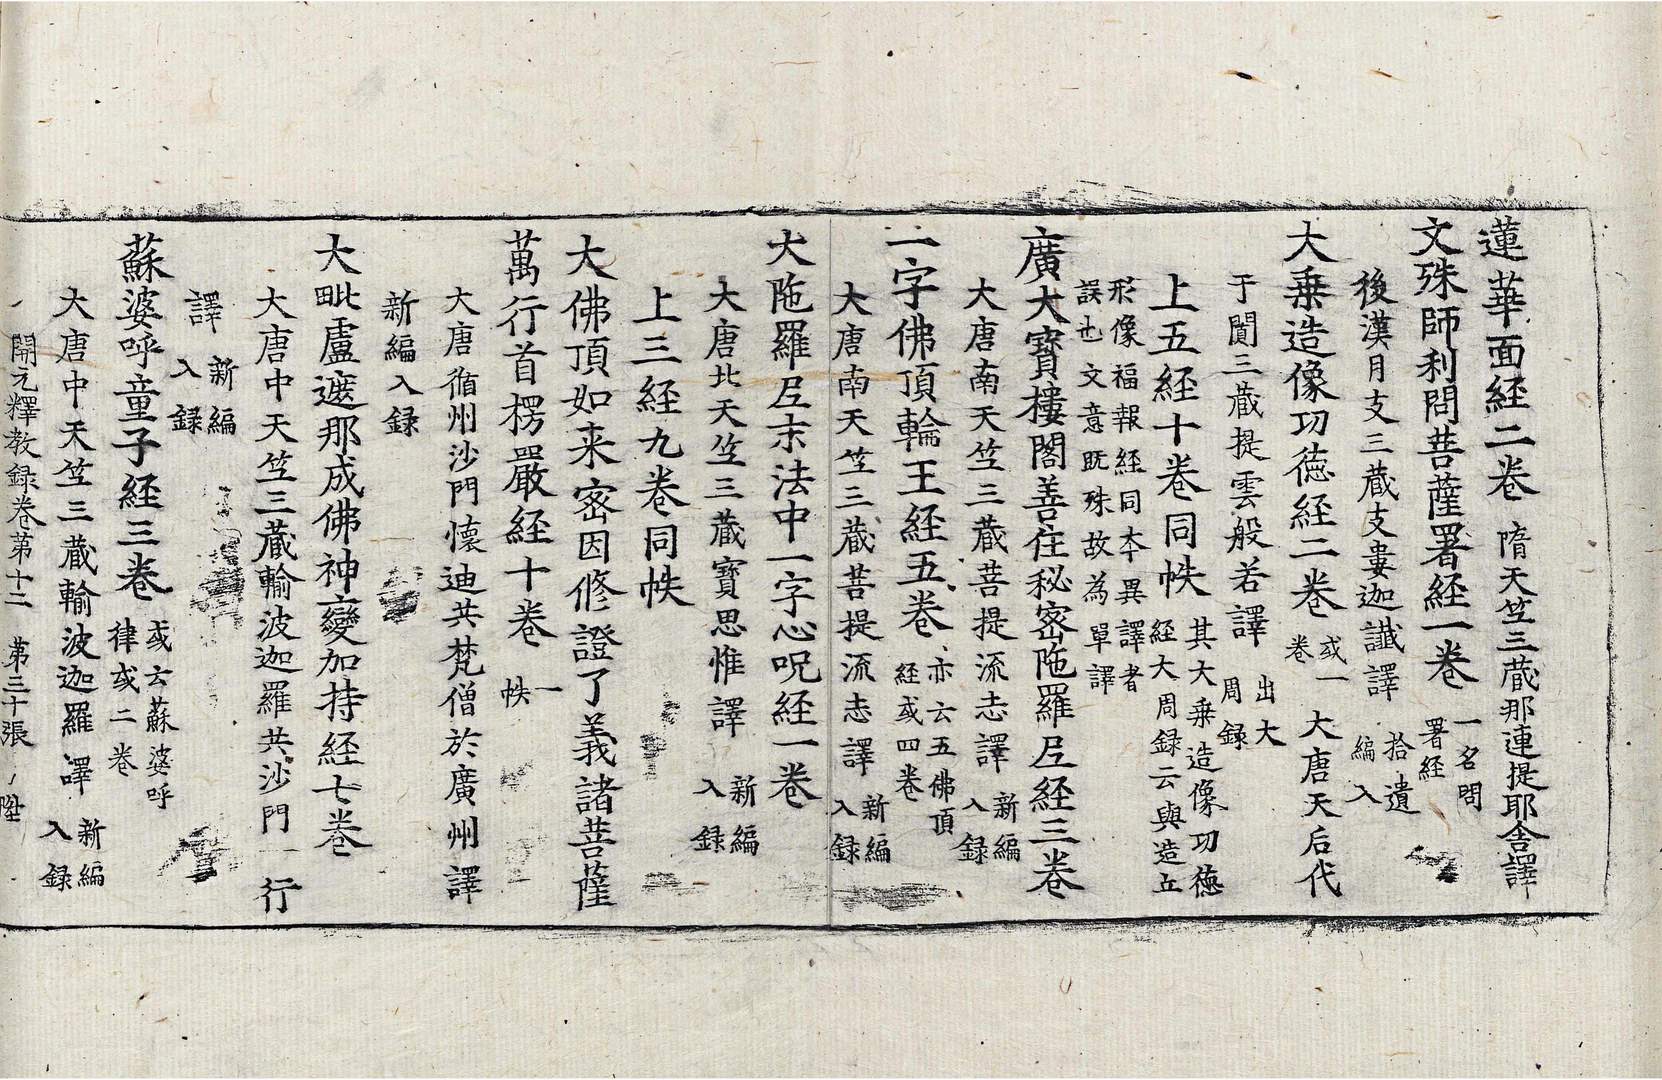 蓮華面経二卷 隋天竺三蔵那連提耶舎譯
文殊師利問菩薩署経一卷 一名問
署経
後漢月支三蔵支婁迦讖譯 拾遺
編入
大乗造像功徳経二卷 或一
卷 大唐天后代
于闐三蔵提雲般若譯 出大
周錄
上五経十卷同帙 其大乗造像功徳
経大周録云與造立
形像福報経同本異譯者
誤也文意既殊故為單譯
廣大寳樓閣善住秘密陁羅尼経三卷
大唐南天竺三蔵菩提流志譯 新編
入録
一字佛頂輪王経五卷 亦云五佛頂
経或四卷
大唐南天竺三蔵菩提流志譯 新編
入録
大陁羅尼末法中一字心呪経一卷
大唐北天竺三蔵寳思惟譯 新編
入録
上三経九卷同帙
大佛頂如来密因修證了義諸菩薩
萬行首楞嚴経十卷 一
帙
大唐循州沙門懐迪共梵僧於廣州譯
新編入録
大毗盧遮那成佛神變加持経七卷
大唐中天竺三蔵輸波迦羅共沙門一行
譯 新編
入録
蘇婆呼童子経三卷 或云蘇婆呼
律或二卷
大唐中天竺三蔵輸波迦羅譯 新編
入録
開元釋教録卷第十二 第三十張 陞